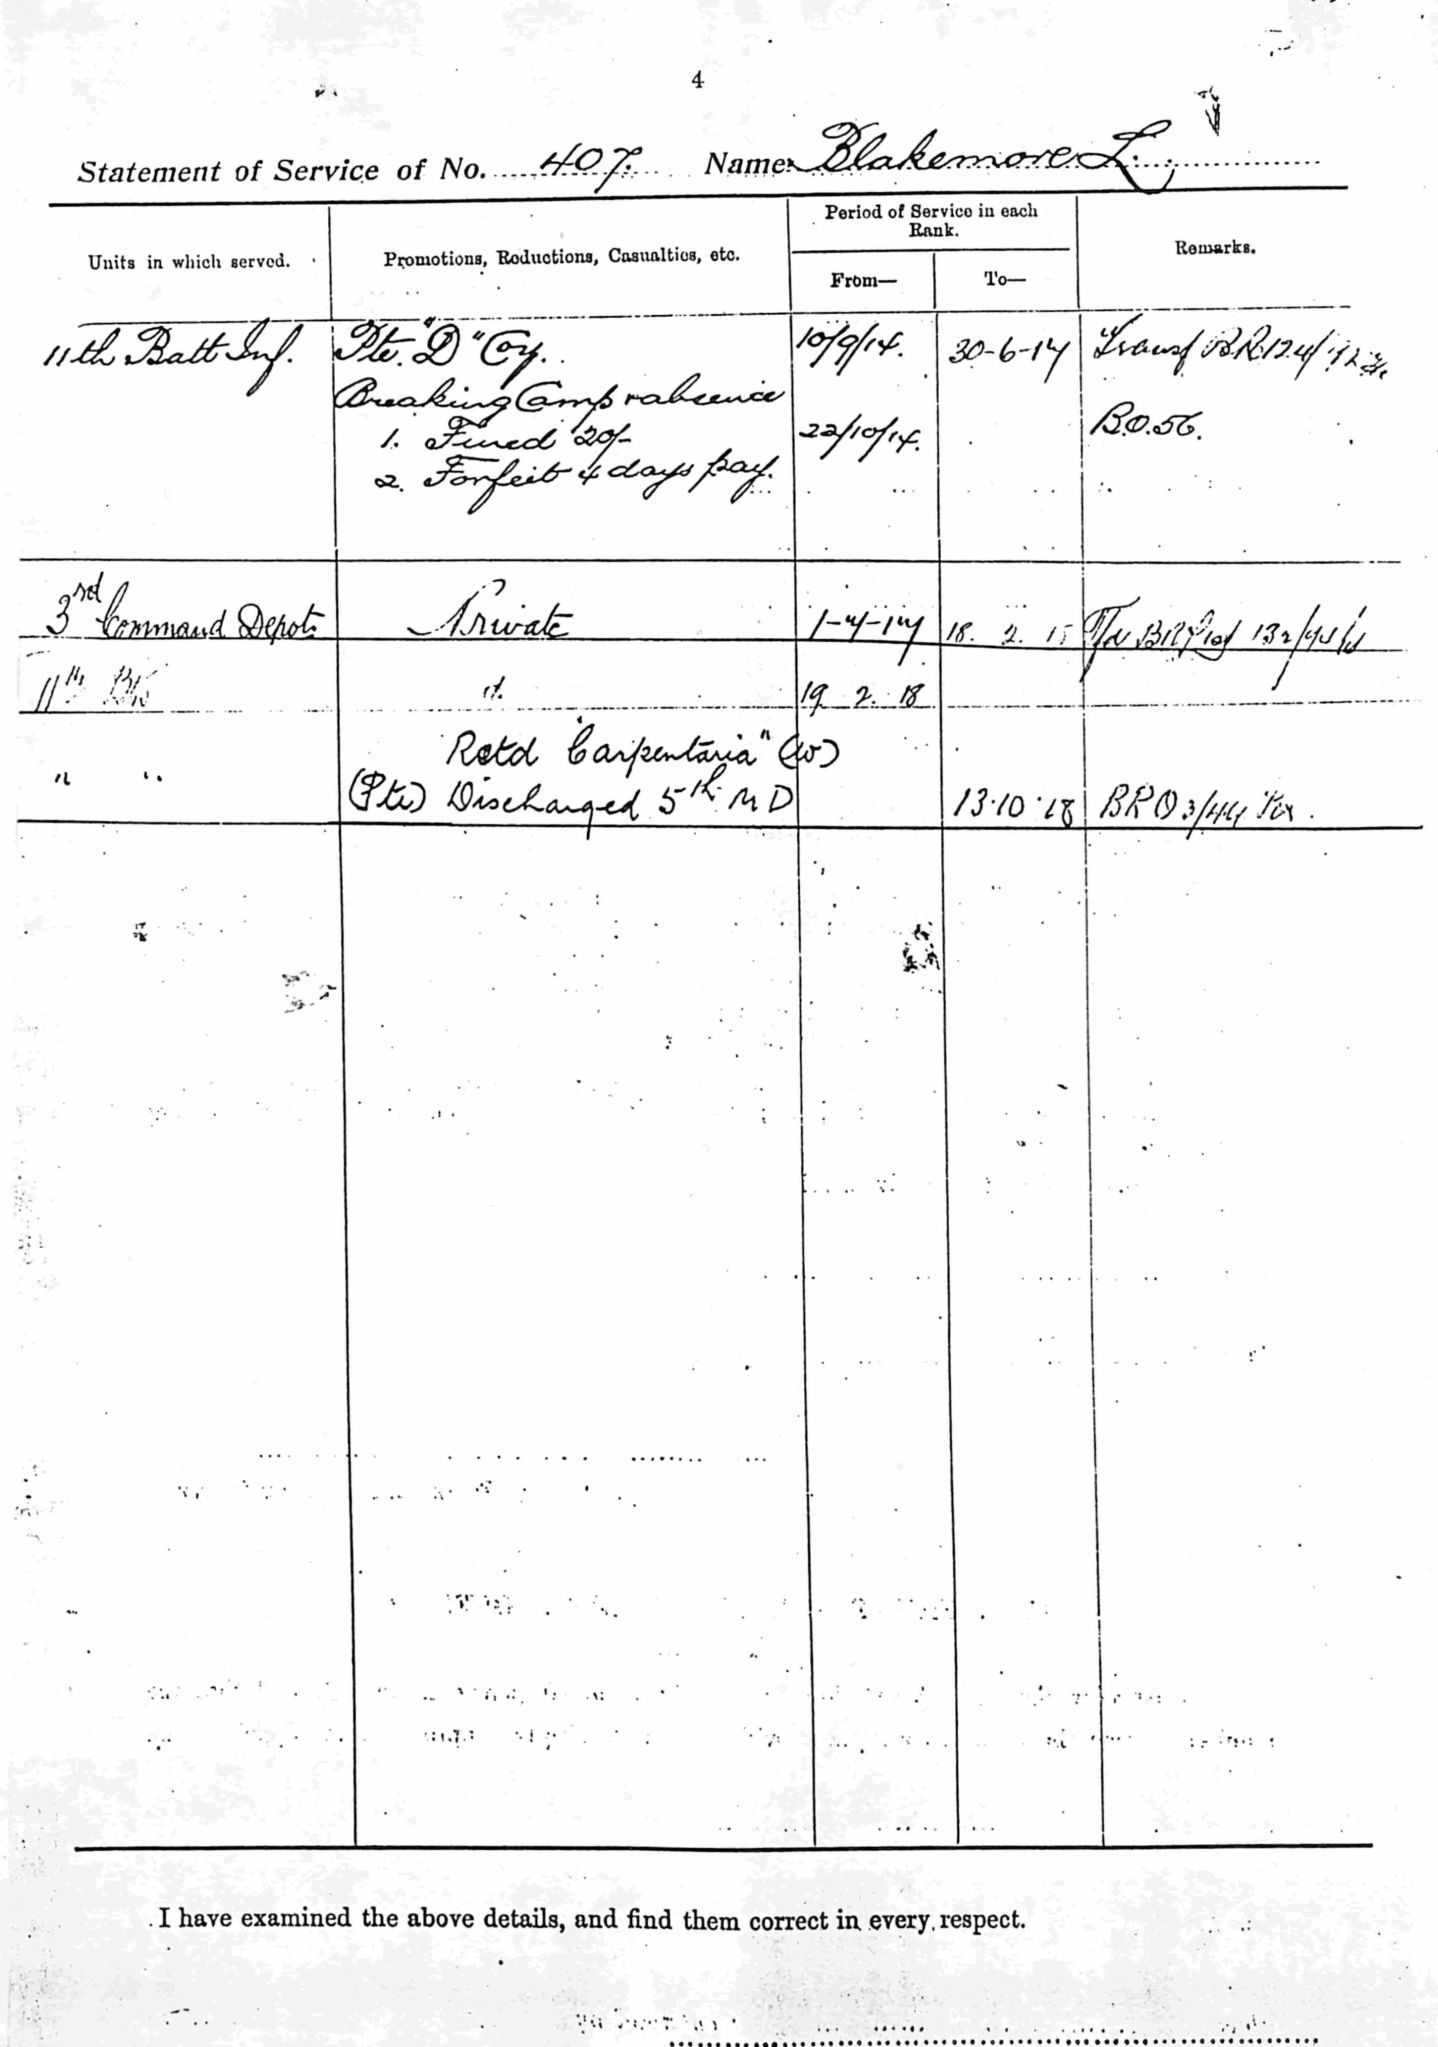 4
Statement of Service of No. 407. Name: Blakemore L.
Units in which served.
Promotions, Reductions, Casualties, etc.
Period of Service in each Rank.
From—
To—
Remarks.
11th Batt Inf. Pte. "D" Coy. 10/9/14. 30-6-17 Transf
Breaking Camp & absence
1. Fined 20/- 22/10/14. B.O.56.
2. Forfeit 4 days pay.
3rd Command Depot. Private 1-7-17 18. 2. 18
11th Bn 19 2. 18
Retd "Carpentaria" (W)
" " (Pte) Discharged 5th M D 13.10.18 BRO 3/44
I have examined the above details, and find them correct in every respect.